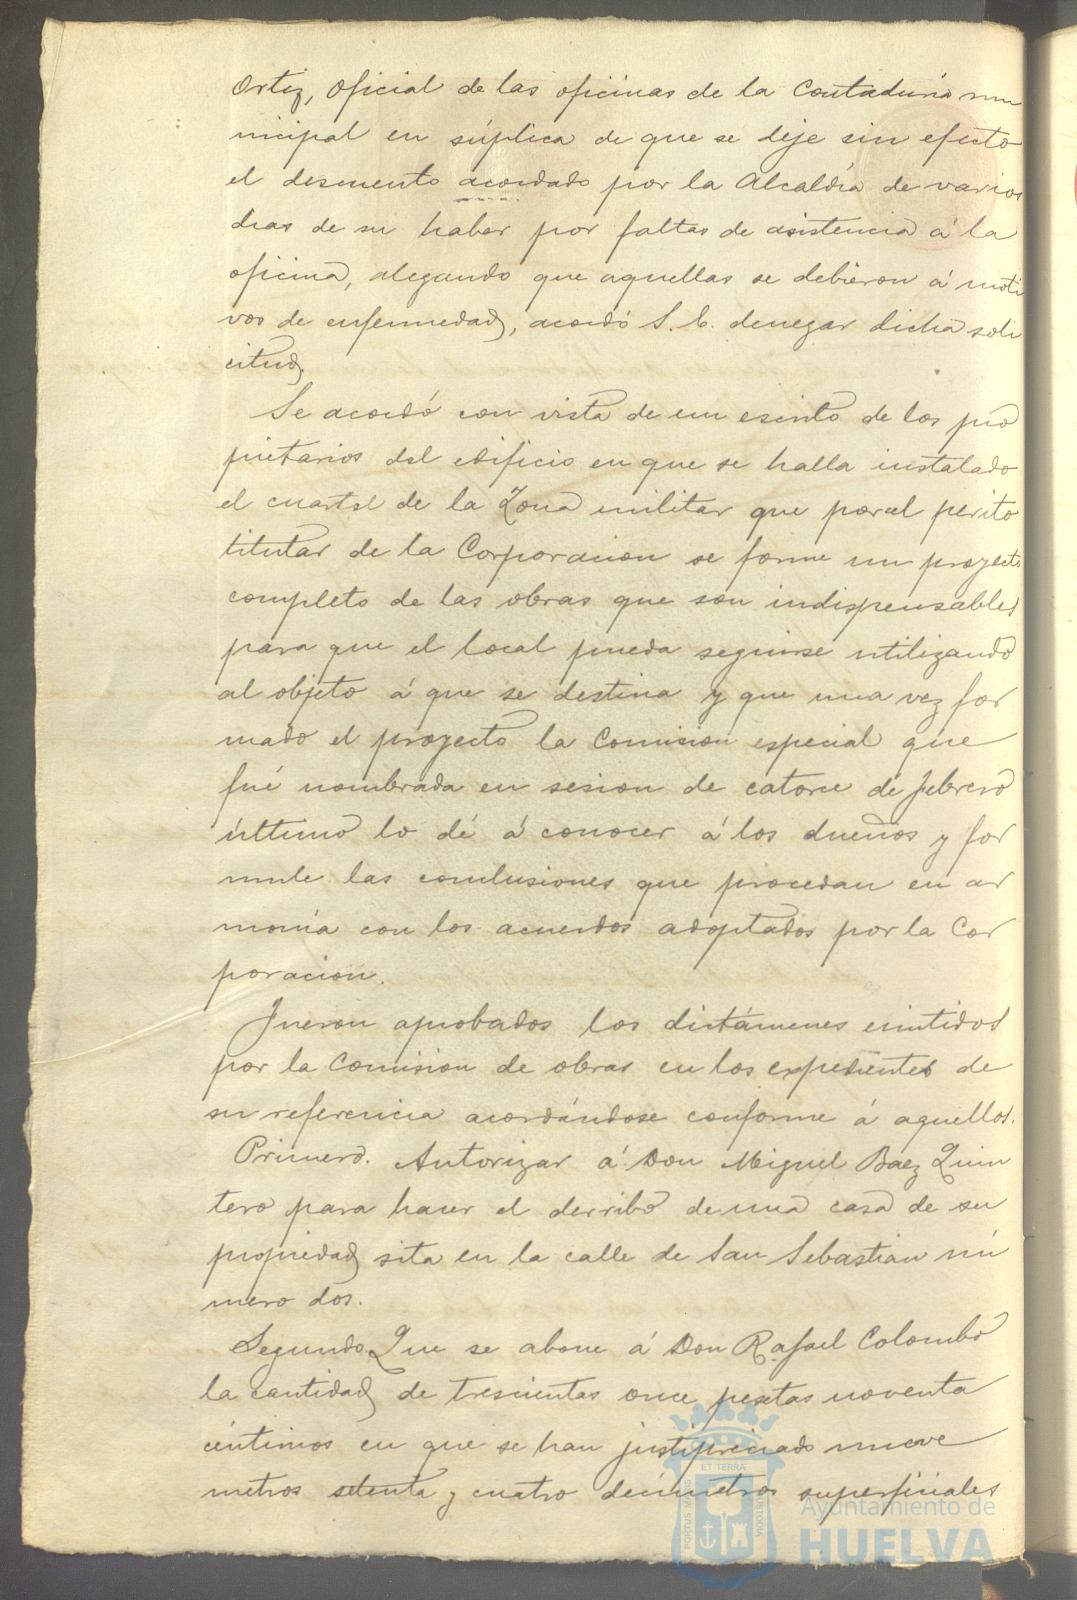 Ortiz, oficial de las oficinas de la Contaduría mu
nicipal en súplica de que se deje sin efecto
el descuento acordado por la Alcaldía de varios
dias de su haber por faltas de asistencia á la
oficina, alegando que aquellas se debieron á moti
vos de enfermedad, acordó S. E. denegar dicha soli
citud.
Se acordó con vista de un escrito de los pro
pietarios del edificio en que se halla instalado
el cuartel de la Zona militar que por el perito
titular de la Corporacion se forme un proyecto
completo de las obras que son indispensables
para que el local pueda seguirse utilizando
al objeto á que se destina y que una vez for
mado el proyecto la Comision especial que
fué nombrada en sesion de catorce de febrero
último lo dé á conocer á los dueños y for
mule las conclusiones que procedan en ar
monía con los acuerdos adoptados por la Cor
poracion.
Fueron aprobados los dictámenes emitidos
por la Comision de obras en los expedientes de
su referencia acordándose conforme á aquellos.
Primero. Autorizar á Don Miguel Baez Quin
tero para hacer el derribo de una casa de su
propiedad sita en la calle de San Sebastian nú
mero dos.
Segundo. Que se abone á Don Rafael Colombo
la cantidad de trescientas once pesetas noventa
céntimos en que se han justipreciado nueve
metros setenta y cuatro decímetros superficiales
PORTUS MARIS ET TERRÆ CUSTODIA
Ayuntamiento de
HUELVA